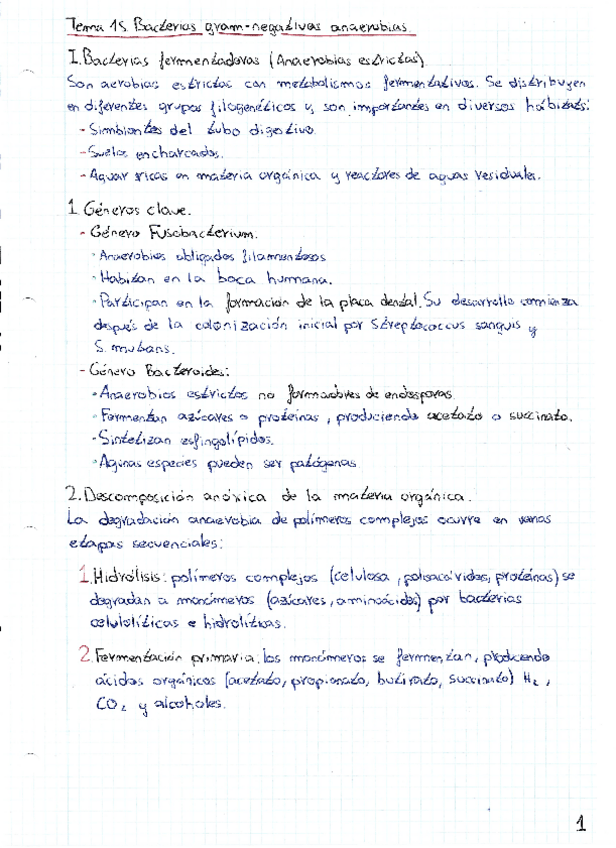 Tema 15. Bacterias gram-negativas anaerobias.
I. Bacterias fermentadoras (Anaerobias estrictas)
Son aerobias estrictas con metabolismos fermentativos. Se distribuyen
en diferentes grupos filogenéticos y son importantes en diversos hábitats:
- Simbiontes del tubo digestivo.
- Suelos encharcados.
- Aguar ricas en materia orgánica y reactores de aguas residuales.
1. Géneros clave.
- Género Fusobacterium.
· Anaerobios obligados filamentosos
· Habitan en la boca humana.
· Participan en la formación de la placa dental. Su desarrollo comienza
después de la colonización inicial por Streptococcus sanguis y
S. mutans.
- Género Bacteroides:
· Anaerobios estrictos no formadores de endosporas.
· Fermentan azúcares o proteínas, produciendo acetato o succinato.
· Sintetizan esfingolípidos.
· Aginas especies pueden ser patógenas
2. Descomposición anóxica de la materia orgánica.
La degradación anaerobia de polímeros complejos ocurre en varias
etapas secuenciales:
1. Hidrólisis: polímeros complejos (celulosa, polisacáridos, proteínas) se
degradan a monómeros (azúcares, aminoácidos) por bacterias
celulolíticas e hidrolíticas.
2. Fermentación primaria: los monómeros se fermentan, produciendo
ácidos orgánicos (acetato, propionato, butirato, succinato) H₂,
CO₂ y alcoholes.
1